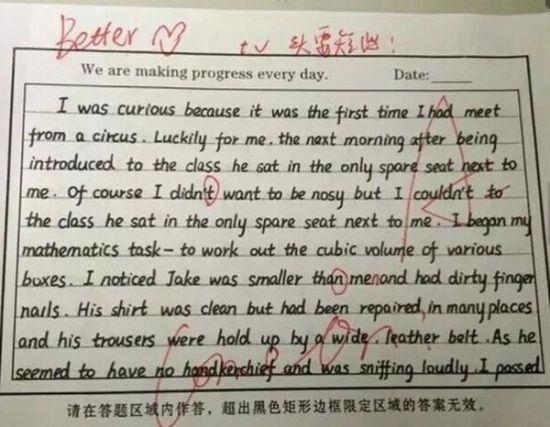 Better
tv 头要短些!
We are making progress every day. Date:
I was curious because it was the first time I had meet
from a circus. Luckily for me, the next morning after being
introduced to the class he sat in the only spare seat next to
me. Of course I didn't want to be nosy but I couldn't to
the class he sat in the only spare seat next to me. I began my
mathematics task - to work out the cubic volume of various
boxes. I noticed Jake was smaller than menand had dirty finger
nails. His shirt was clean but had been repaired, in many places
and his trousers were hold up by a wide, leather belt. As he
seemed to have no handkerchief and was sniffing loudly. I passed
请在答题区域内作答,超出黑色矩形边框限定区域的答案无效。